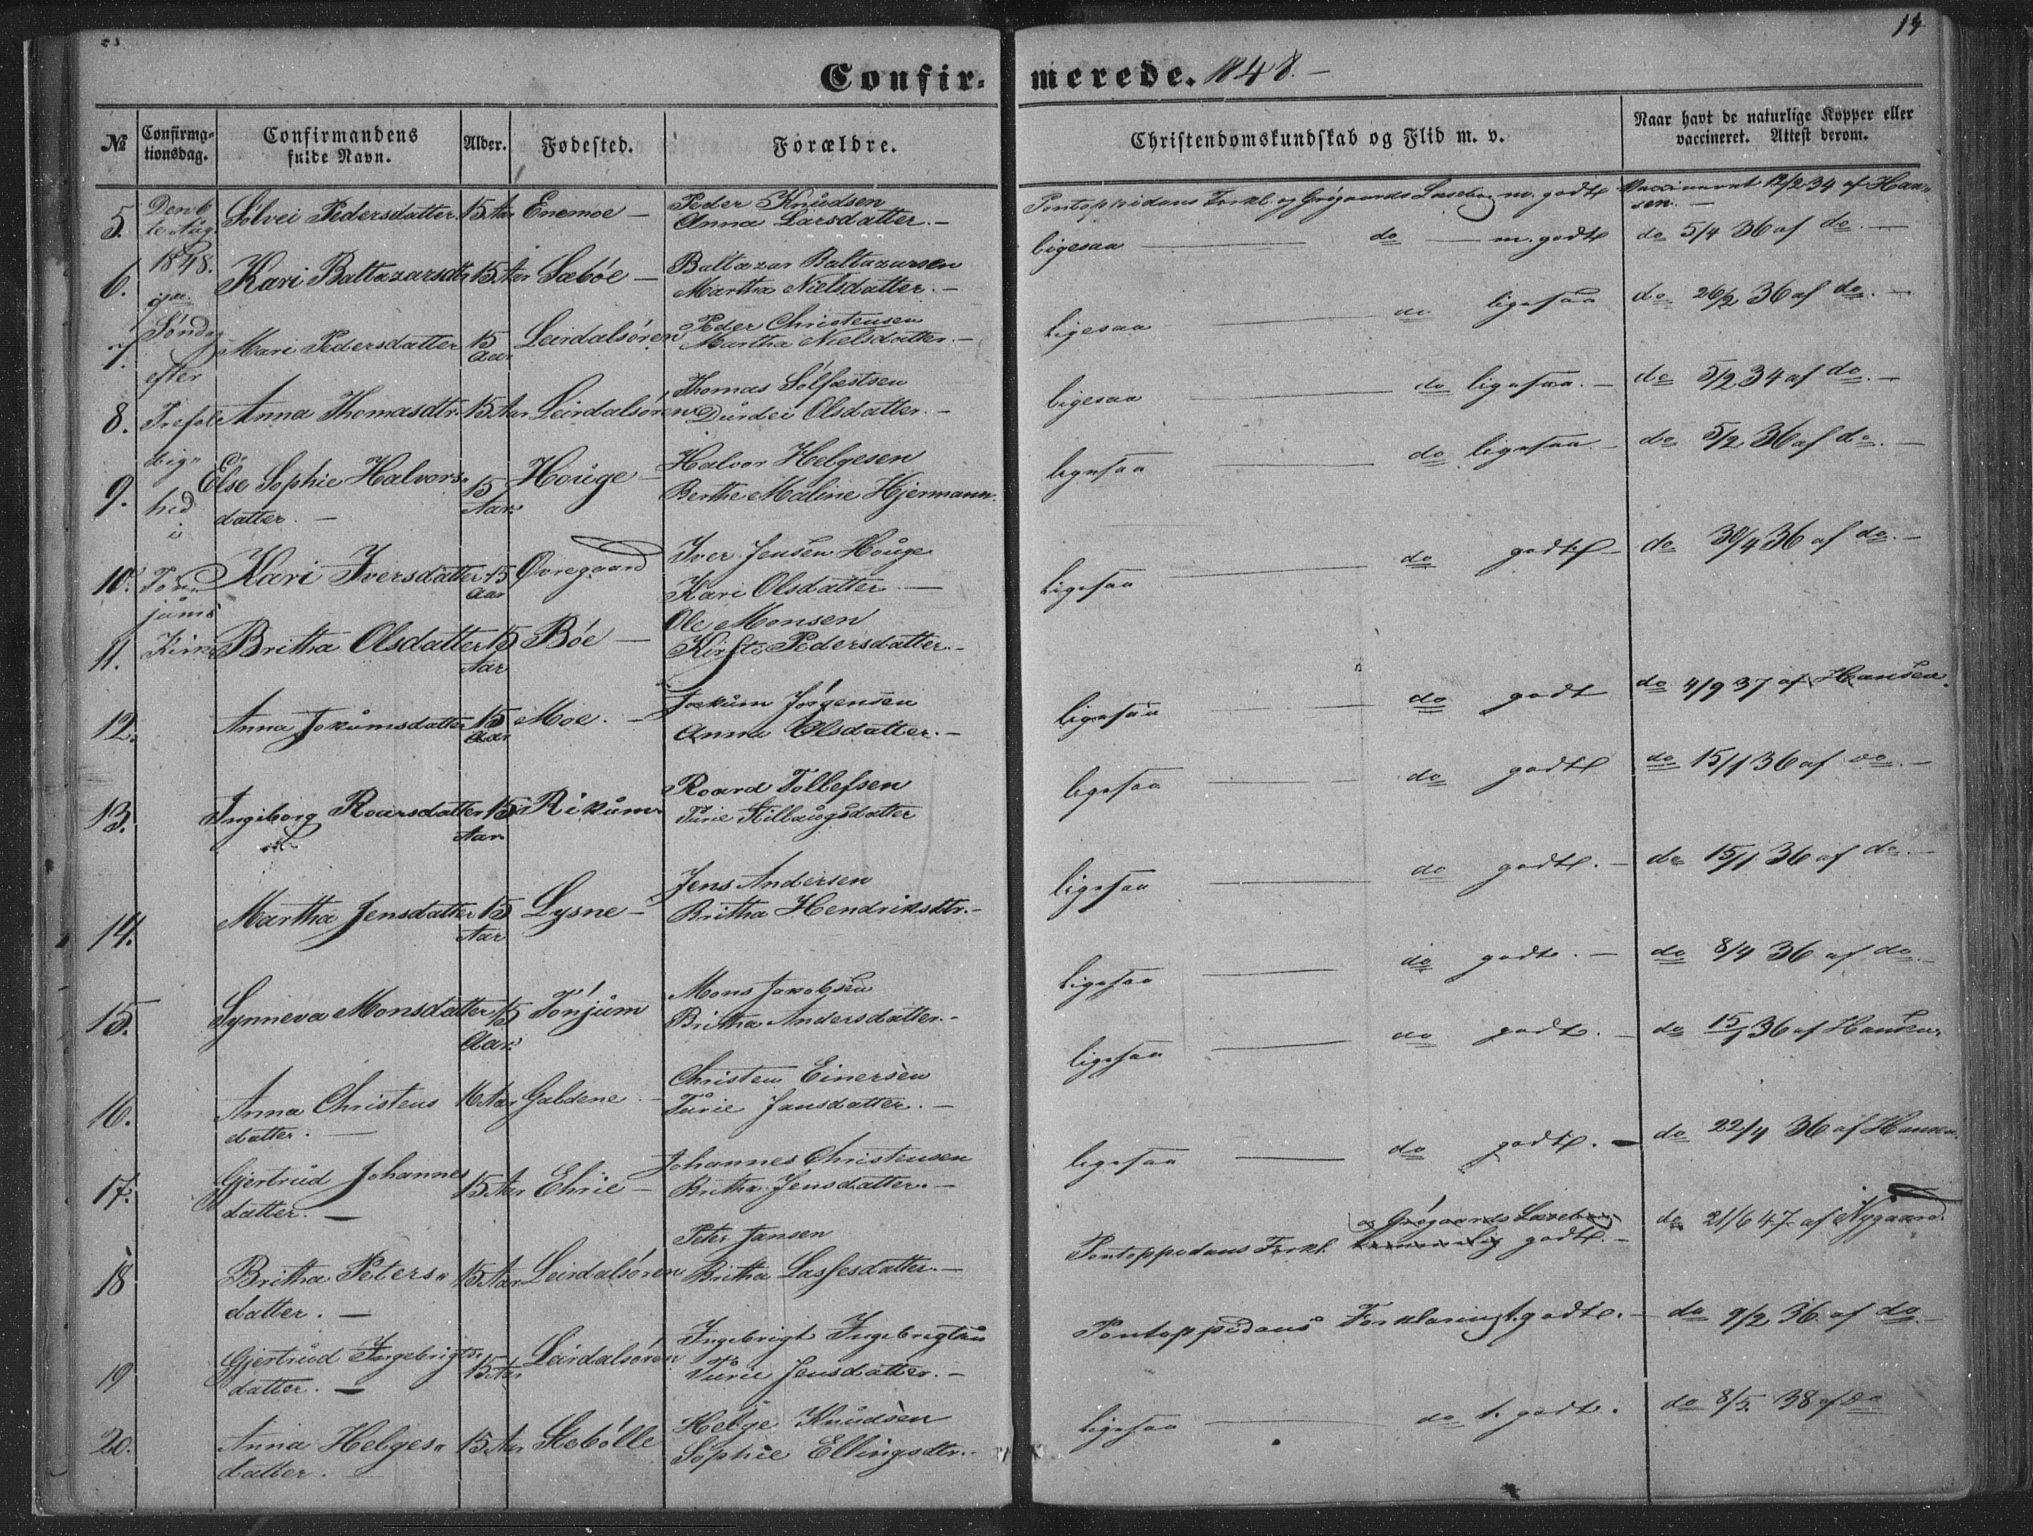 14
Confirmerede. 1848. –
№ Confirmationsdag. Confirmandens fulde Navn. Alder. Fødested. Forældre. Christendomskundskab og Flid m. v. Naar havt de naturlige Kopper eller vaccineret. Attest derom.
Den 6te Aug. 1848. 7de Søndag efter Trefoldighed i Tønjums Kirke
5. Sølvei Pedersdatter 15 Aar Enemoe – Peder Knudsen Anna Larsdatter. – Pontoppidans Forkl. og Grøgaards Læsebog m. godt Vaccineret 12/2 34 af Hansen. –
6. Kari Baltazarsdtr 15 Aar Sæbøe – Baltazar Baltazarsen Martha Nielsdatter. – ligesaa do m. godt do 5/4 36 af do. –
7. Mari Pedersdatter 15 Aar Leirdalsøren Peder Christensen Martha Nielsdatter. – ligesaa do ligesaa do 26/2 36 af do. –
8. Anna Thomasdtr. 15 Aar Leirdalsøren Thomas Solfestsen Durdei Olsdatter. – ligesaa do ligesaa. – do 5/2 34 af do. –
9. Else Sophie Halvorsdatter. – 15 Aar Houge – Halvor Helgesen Berthe Maline Hjermann. ligesaa do ligesaa – do 5/2 36 af do. –
10. Kari Iversdatter 15 Aar Øvregaard Iver Jensen Houge Kari Olsdatter – ligesaa do godt – do 30/4 36 af do. –
11. Britha Olsdatter 15 Aar Bøe – Ole Monsen Kirsti Pedersdatter. – ligesaa do godt do 4/9 37 af Hansen.
12. Anna Jokumsdatter 15 Aar Moe. – Jokum Jørgensen Anna Olsdatter. – ligesaa do godt do 15/1 36 af do. –
13. Ingeborg Roarsdatter 15 Aar Rikum Roard Tollefsen Turie Kilbaugsdatter ligesaa do godt. – do 15/1 36 af do. –
14. Martha Jensdatter 15 Aar Lysne – Jens Andersen Britha Hendriksdtr. – ligesaa do godt. – do 8/4 36 af do. –
15. Synneva Monsdatter 15 Aar. Tønjum Mons Jakobsen Britha Andersdatter. – ligesaa do godt. – do 15/1 36 af Hansen
16. Anna Christensdatter. – 16 Aar Galdene – Christen Einersen Turie Jansdatter. – ligesaa do godt. – do 22/4 36 af Hansen.
17. Gjertrud Johannesdatter. – 15 Aar Ehrie – Johannes Christensen Britha Jensdatter. – Pontoppidans Forkl. og Grøgaards Læsebog godt. – do 21/6 47 af Nygaard.
18 Britha Petersdatter. – 15 Aar Leirdalsøren Peter Jansen Britha Lassesdatter. – Pontoppidans Forklaring t. godt. – do 9/2 36 af do. –
19 Gjertrud Ingebrigtsdatter. – 15 Aar Leirdalsøren Ingebrigt Ingebrigtsen Turie Jensdatter. – ligesaa do t. godt. do 8/5 38 af do
20. Anna Helgesdatter. – 15 Aar Stebølle Helge Knudsen Sophie Ellingsdtr. –